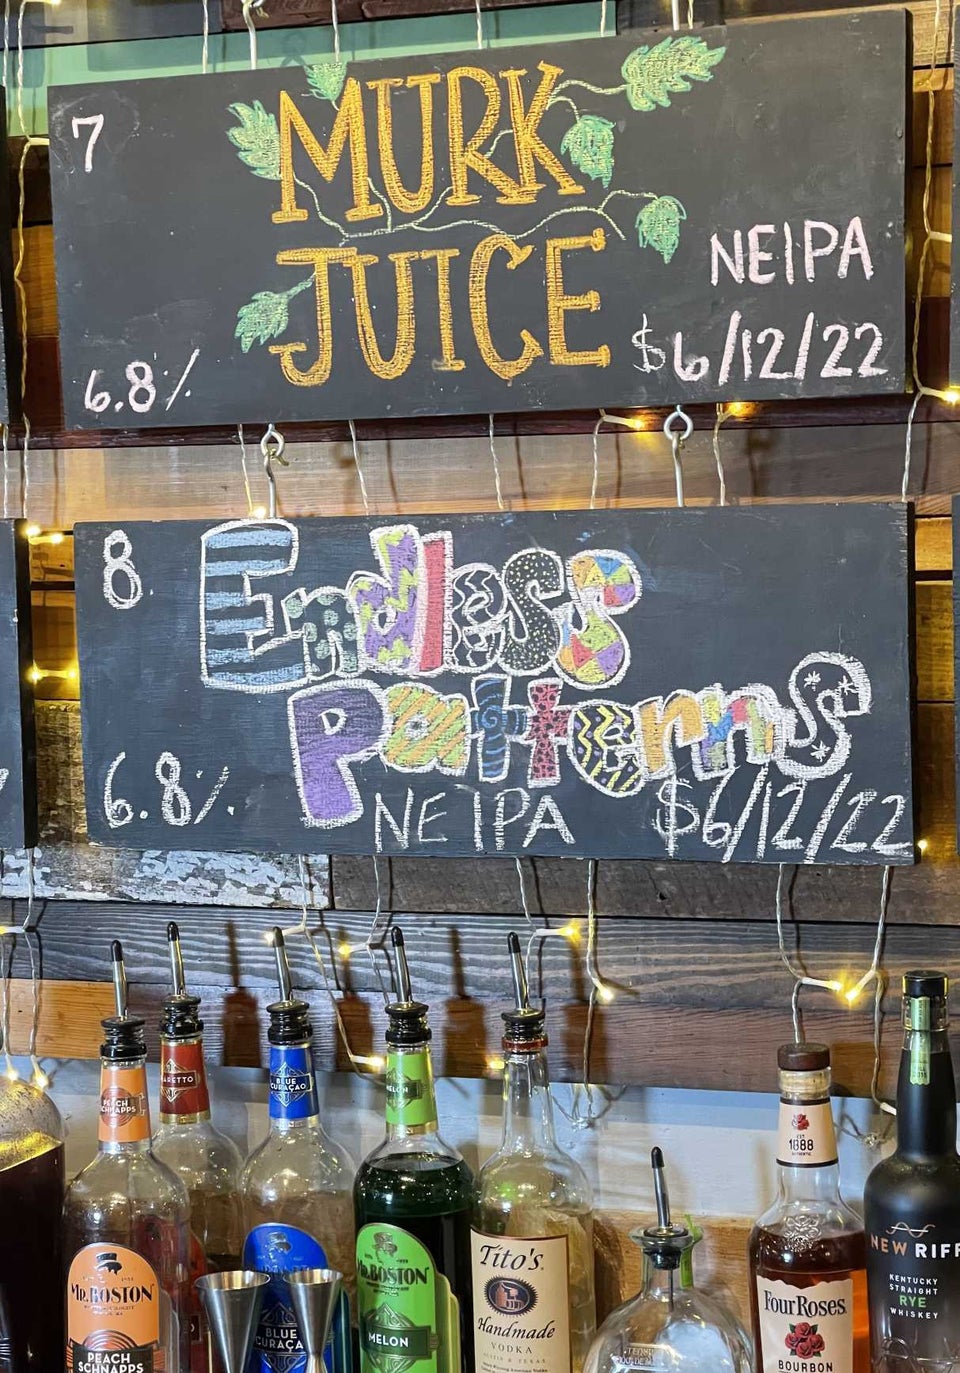 7
MURK
JUICE
NEIPA
6.8%
$6/12/22
8.
Endless
Patterns
6.8%
NEIPA
$6/12/22
PEACH
SCHNAPPS
BLUE
CURAÇAO
MELON
EST
1888
Mr. BOSTON
PEACH
SCHNAPPS
BLUE
Mr. BOSTON
MELON
Tito's
Handmade
VODKA
AUSTIN & TEXAS
Four Roses
BOURBON
NEW RIFF
KENTUCKY
STRAIGHT
RYE
WHISKEY